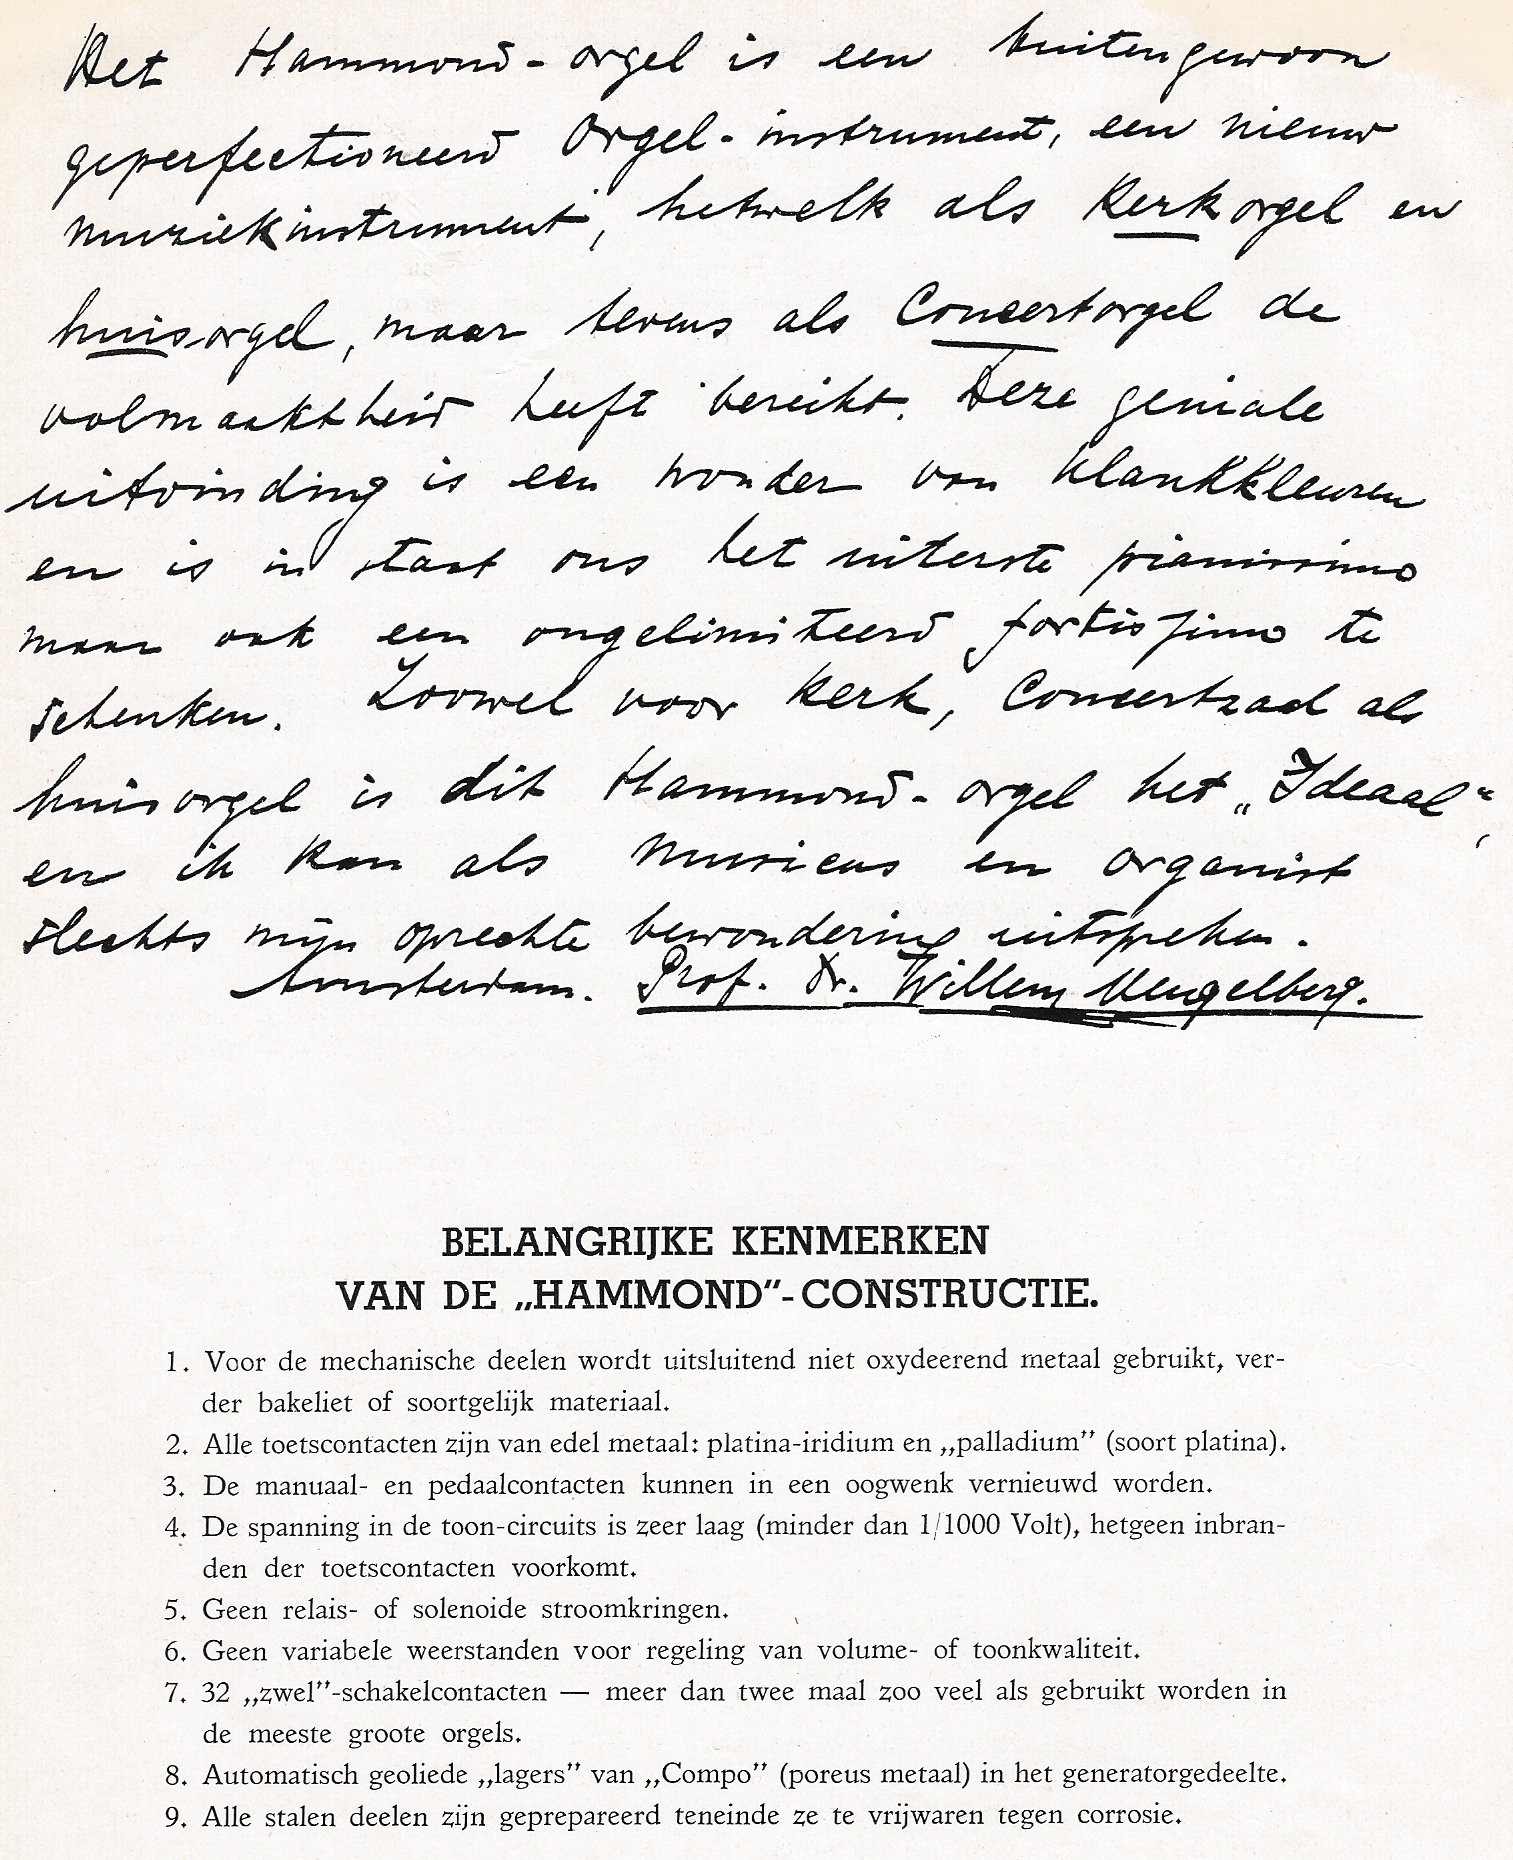 Het Hammond-orgel is een buitengewoon
geperfectioneerd Orgel-instrument, een nieuw
muziekinstrument, hetwelk als Kerkorgel en
huisorgel, maar tevens als Concertorgel de
volmaaktheid heeft bereikt. Deze geniale
uitvinding is een wonder van Klankkleuren
en is in staat ons het uiterste pianissimo
maar ook een ongelimiteerd fortissimo te
schenken. Zoowel voor Kerk, Concertzaal als
huisorgel is dit Hammond-orgel het „Ideaal“,
en ik kan als Musicus en organist
slechts mijn oprechte bewondering uitspreken.
Amsterdam. Prof. Dr. Willem Mengelberg.
BELANGRIJKE KENMERKEN
VAN DE „HAMMOND”-CONSTRUCTIE.
1. Voor de mechanische deelen wordt uitsluitend niet oxydeerend metaal gebruikt, ver-
der bakeliet of soortgelijk materiaal.
2. Alle toetscontacten zijn van edel metaal: platina-iridium en „palladium” (soort platina).
3. De manuaal- en pedaalcontacten kunnen in een oogwenk vernieuwd worden.
4. De spanning in de toon-circuits is zeer laag (minder dan 1/1000 Volt), hetgeen inbran-
den der toetscontacten voorkomt.
5. Geen relais- of solenoide stroomkringen.
6. Geen variabele weerstanden voor regeling van volume- of toonkwaliteit.
7. 32 „zwel”-schakelcontacten — meer dan twee maal zoo veel als gebruikt worden in
de meeste groote orgels.
8. Automatisch geoliede „lagers” van „Compo” (poreus metaal) in het generatorgedeelte.
9. Alle stalen deelen zijn geprepareerd teneinde ze te vrijwaren tegen corrosie.